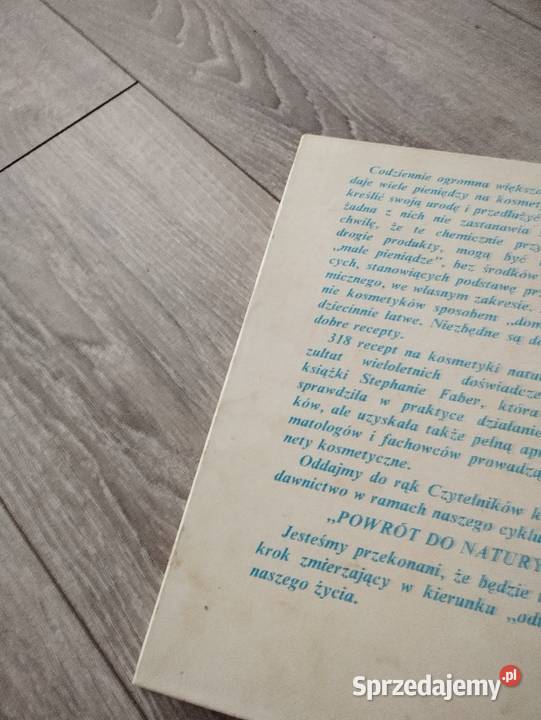 Codziennie ogromna większo
daje wiele pieniędzy na kosmet
kreślić swoją urodę i przedłużyć
żadna z nich nie zastanawia
chwilę, że te chemicznie przy
drogie produkty, mogą być
„małe pieniądze”, bez środków
cych, stanowiących podstawę prz
micznego, we własnym zakresie.
nie kosmetyków sposobem „dom
dziecinnie łatwe. Niezbędne są do
dobre recepty.
318 recept na kosmetyki natu
zultat wieloletnich doświadcze
książki Stephanie Faber, która
sprawdziła w praktyce działanie
ków, ale uzyskała także pełną apr
matologów i fachowców prowadzą
nety kosmetyczne.
Oddajmy do rąk Czytelników k
dawnictwo w ramach naszego cyklu
„POWRÓT DO NATURY
Jesteśmy przekonani, że będzie
krok zmierzający w kierunku „od
naszego życia.
Sprzedajemy.pl